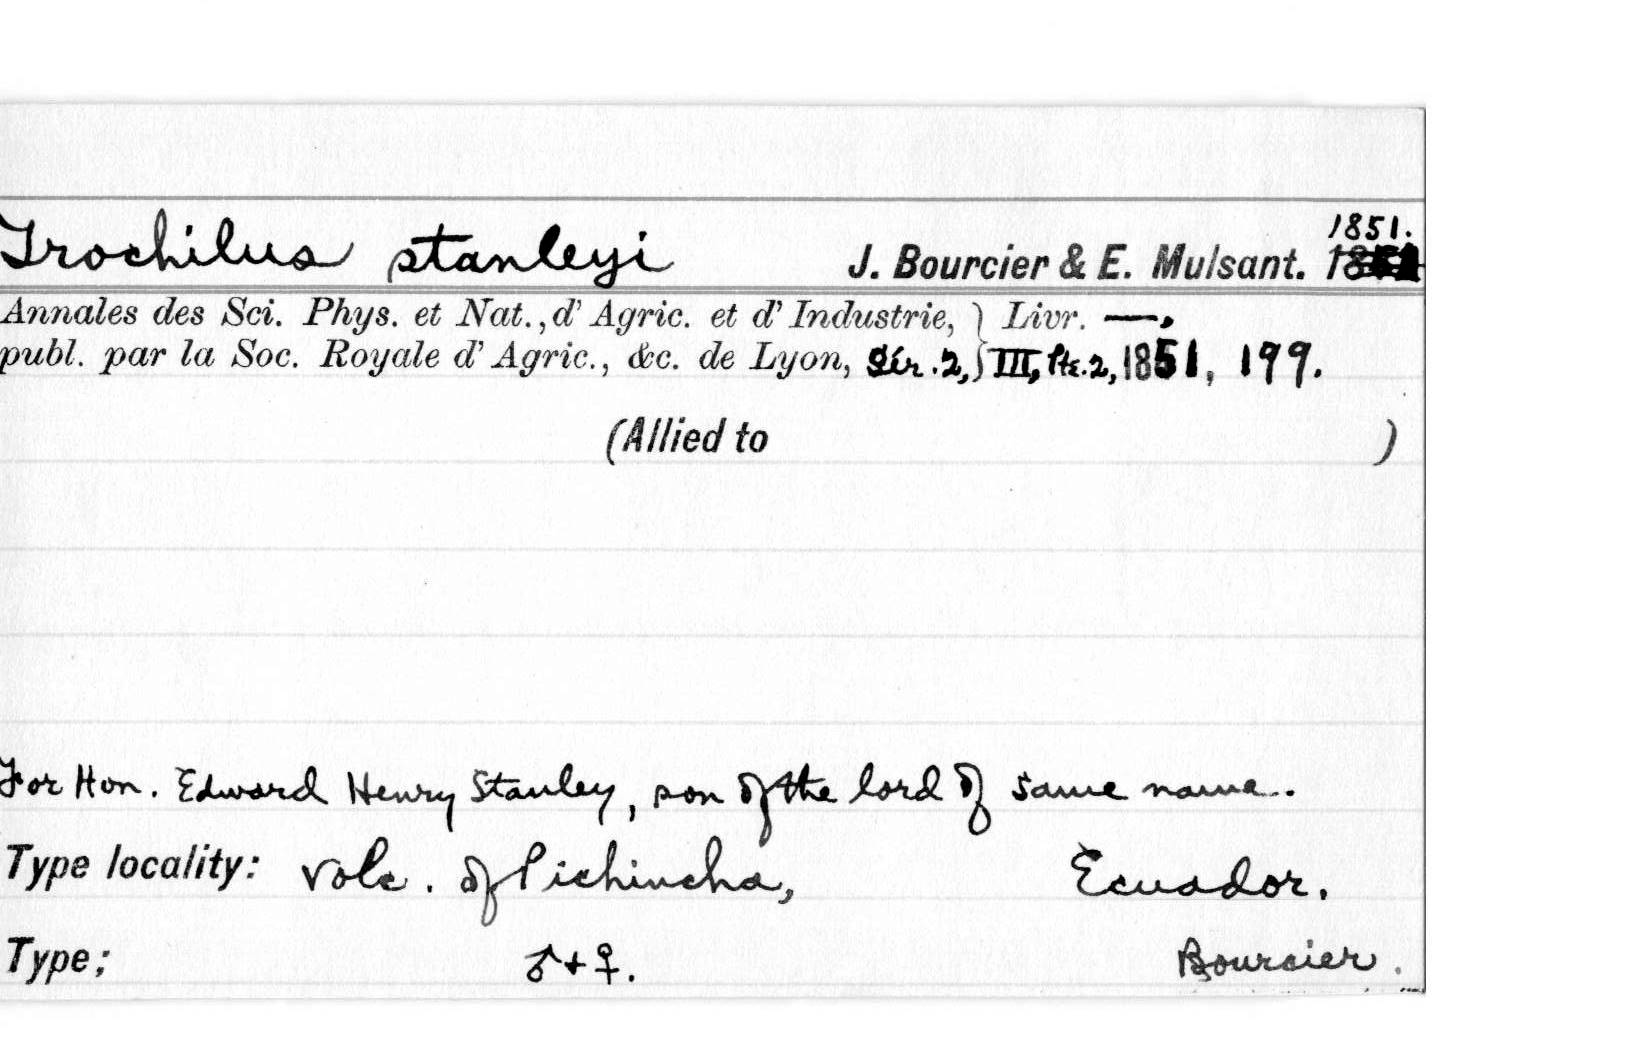 Trochilus stanleyi J. Bourcier & E. Mulsant. 1851.
Annales des Sci. Phys. et Nat., d' Agric. et d' Industrie, } Livr. —,
publ. par la Soc. Royale d' Agric., &c. de Lyon, Sér. 2, } III, Pt. 2, 1851, 199.
(Allied to )
For Hon. Edward Henry Stanley, son of the lord of same name.
Type locality: Volc. of Pichincha, Ecuador.
Type; ♂ + ♀. Bourcier.